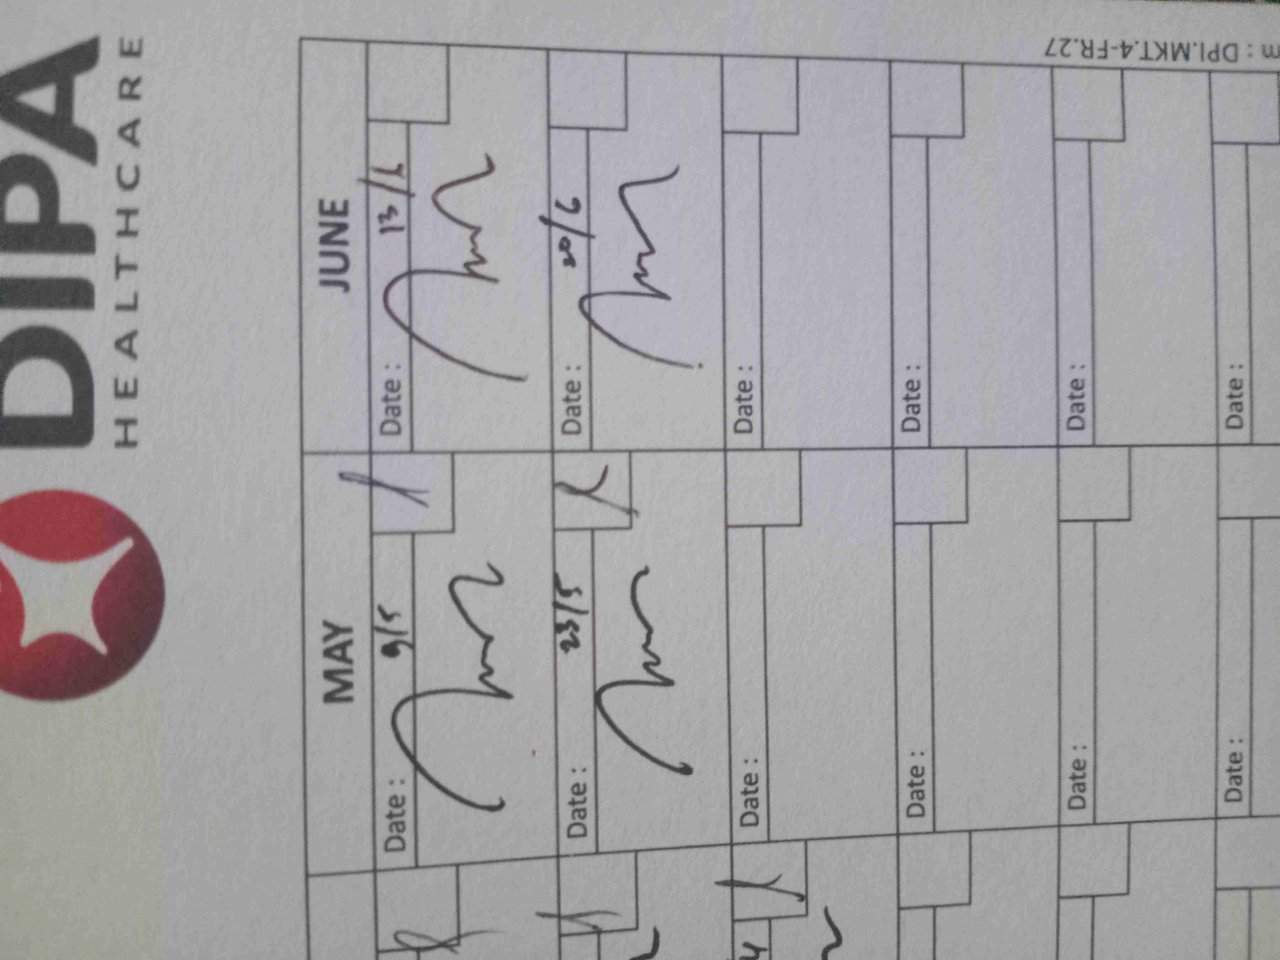 DIPA
HEALTHCARE
m : DPI.MKT.4-FR.27
MAY
JUNE
Date : 9/5
Date : 13/6
Date : 23/5
Date : 20/6
Date :
Date :
Date :
Date :
Date :
Date :
Date :
Date :